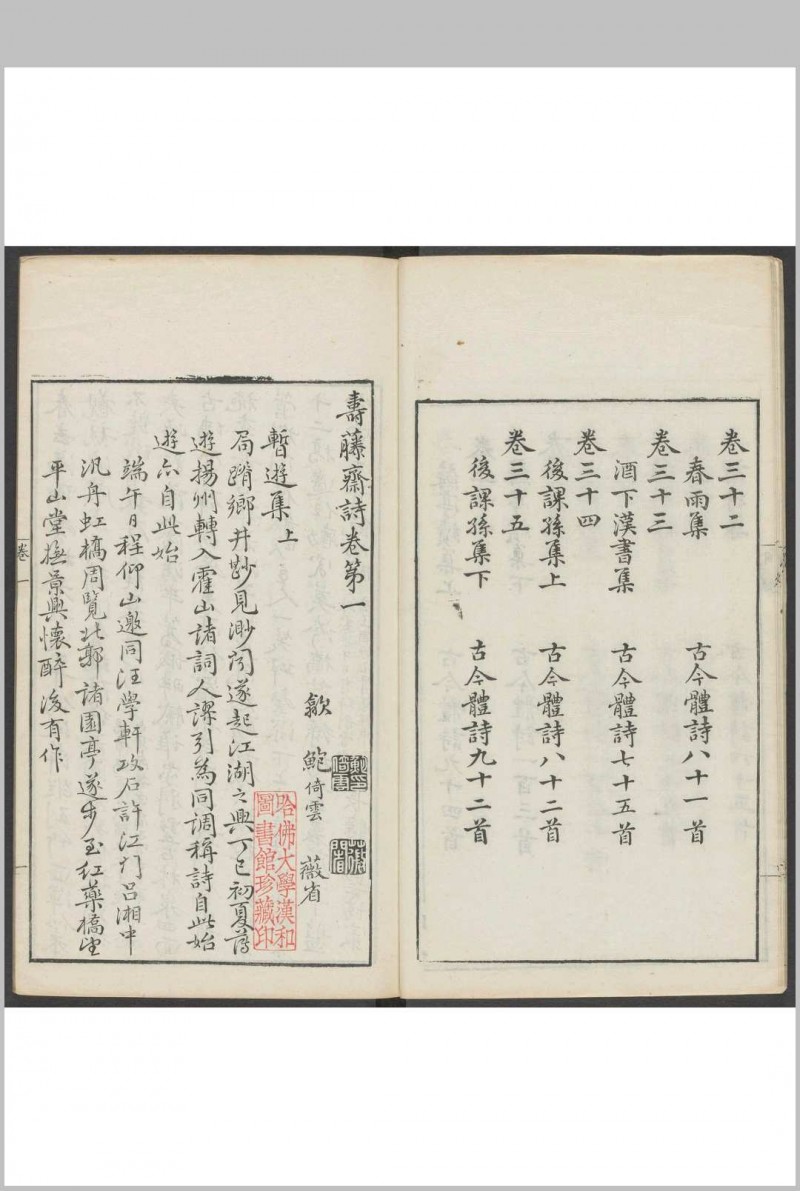 卷三十二
春雨集　古今體詩八十一首
卷三十三
酒下漢書集　古今體詩七十五首
卷三十四
後課孫集上　古今體詩八十二首
卷三十五
後課孫集下　古今體詩九十二首
壽藤齋詩卷第一
歙　鮑倚雲　薇省
暫遊集上
局蹐鄉井尠見渺聞遂起江湖之興丁巳初夏薄
遊揚州轉入霍山諸詞人謬引為同調稱詩自此始
遊亦自此始
端午日程仰山邀同汪學軒攻石許江門呂湘中
汎舟虹橋周覽北郭諸園亭遂步至紅藥橋望
平山堂撫景興懷醉後有作
卷一
哈佛大學漢和
圖書館珍藏印